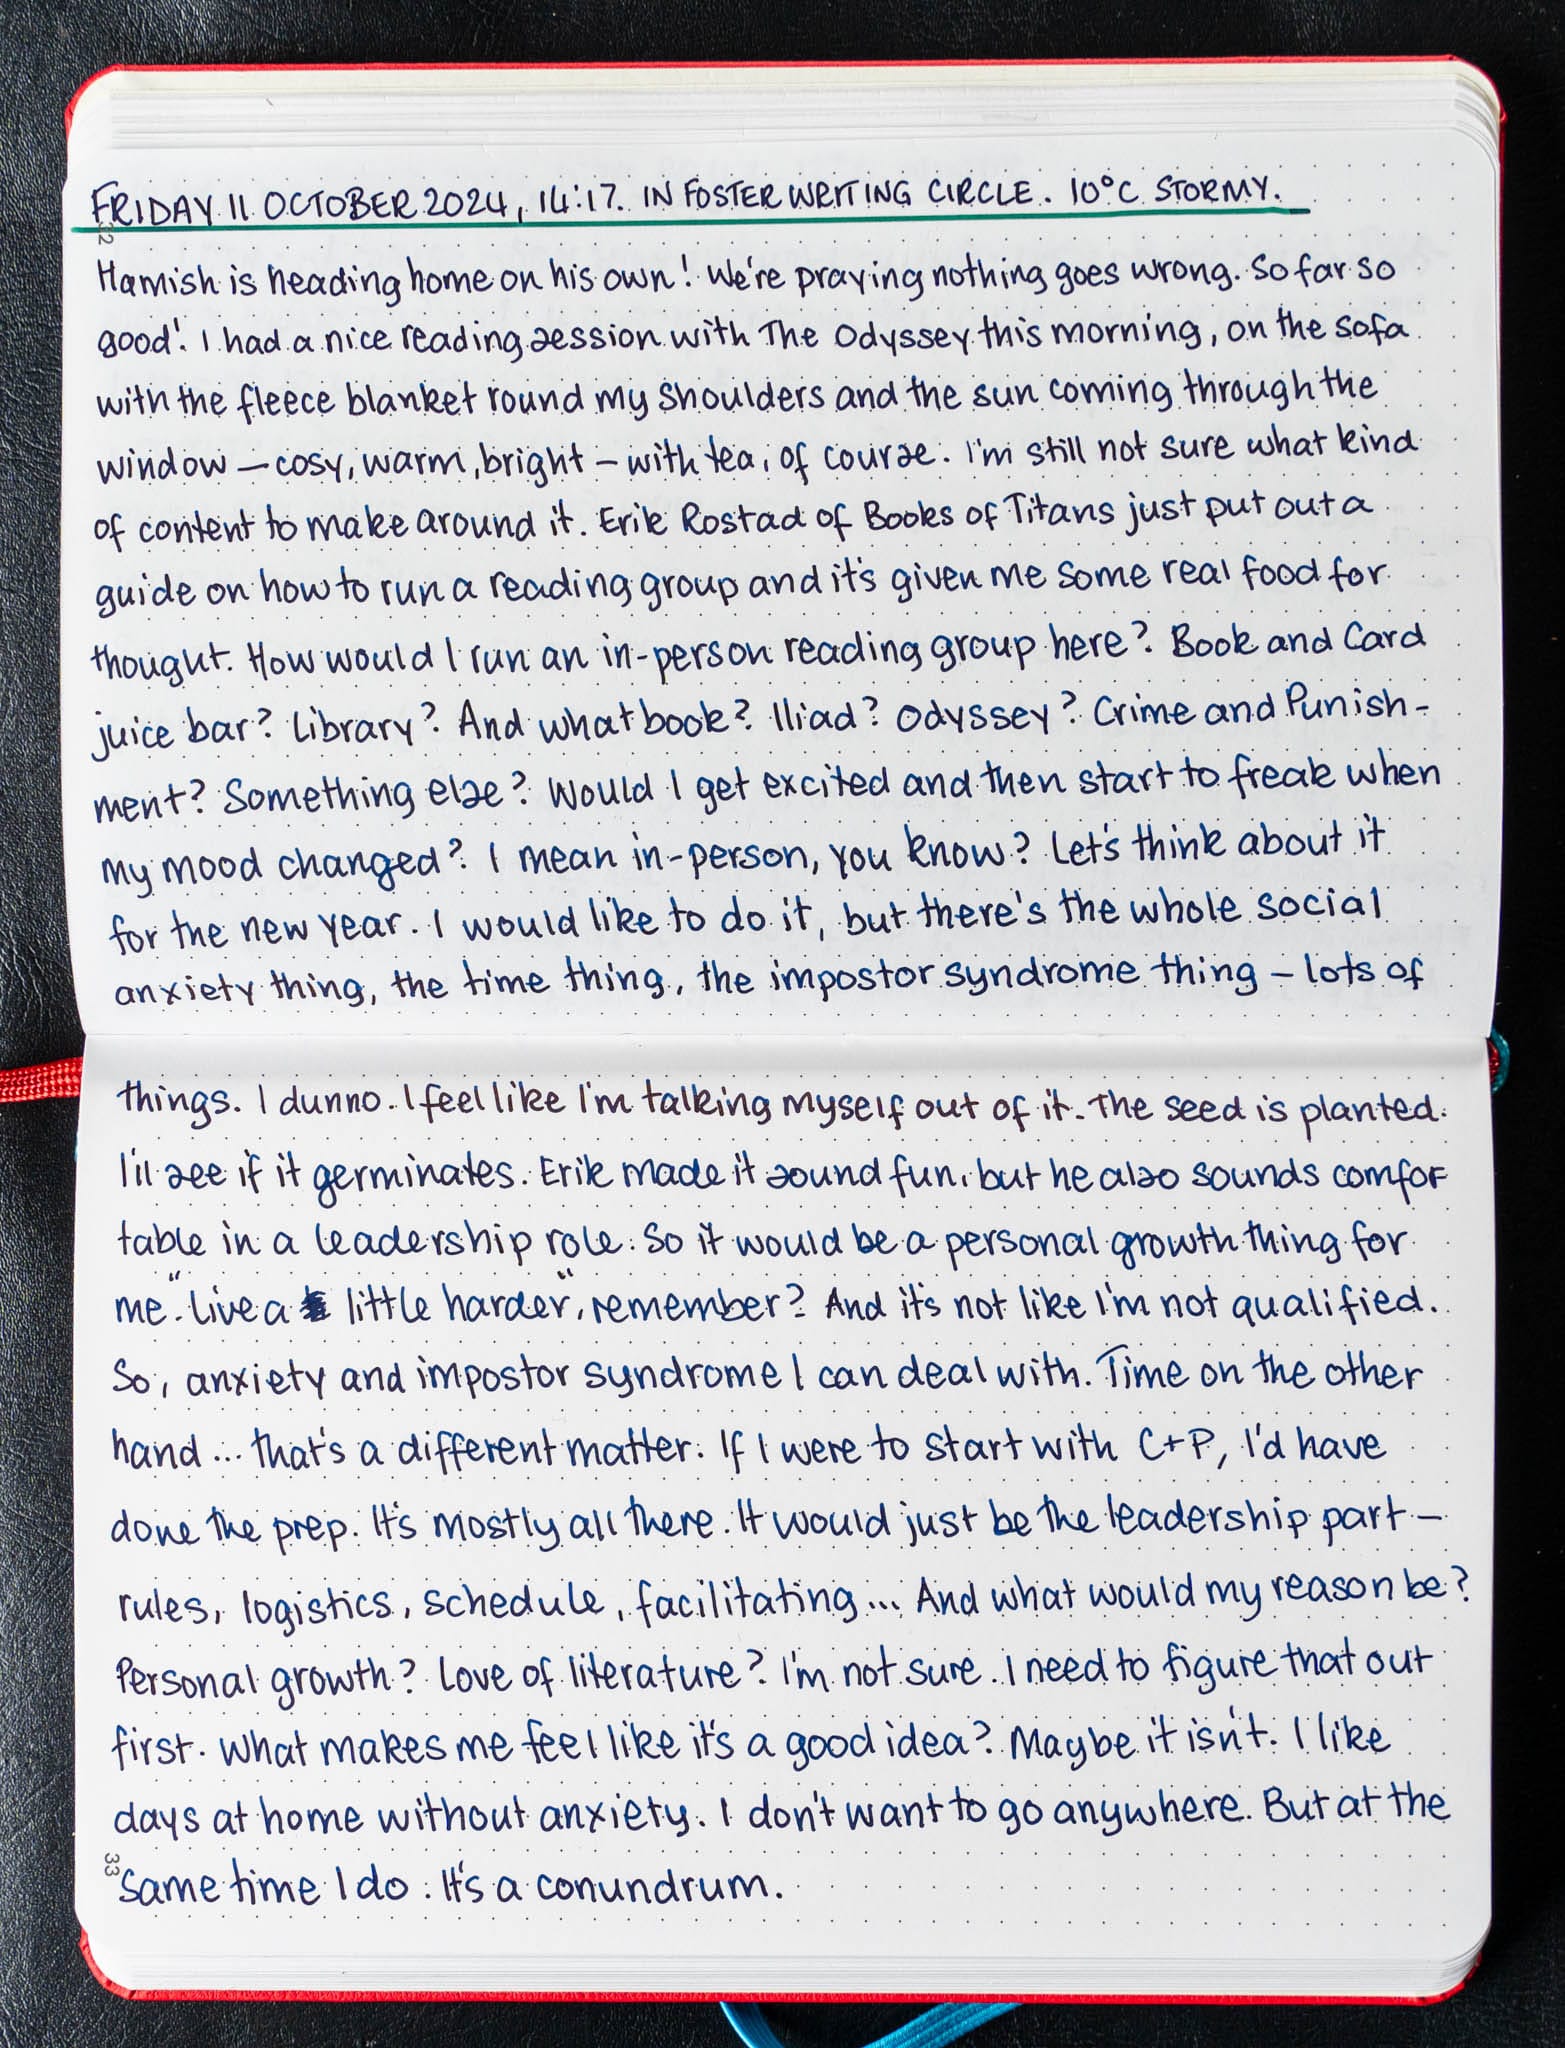 FRIDAY 11 OCTOBER 2024, 14:17. IN FOSTER WRITING CIRCLE. 10°C STORMY.
32
Hamish is heading home on his own! We're praying nothing goes wrong. So far so
good! I had a nice reading session with The Odyssey this morning, on the sofa
with the fleece blanket round my shoulders and the sun coming through the
window – cosy, warm, bright – with tea, of course. I'm still not sure what kind
of content to make around it. Erik Rostad of Books of Titans just put out a
guide on how to run a reading group and it's given me some real food for
thought. How would I run an in-person reading group here? Book and Card
juice bar? Library? And what book? Iliad? Odyssey? Crime and Punish-
ment? Something else? Would I get excited and then start to freak when
my mood changed? I mean in-person, you know? Let's think about it
for the new year. I would like to do it, but there's the whole social
anxiety thing, the time thing, the impostor syndrome thing – lots of
things. I dunno. I feel like I'm talking myself out of it. The seed is planted.
I'll see if it germinates. Erik made it sound fun, but he also sounds comfor
table in a leadership role. So it would be a personal growth thing for
me. "Live a little harder", remember? And it's not like I'm not qualified.
So, anxiety and impostor syndrome I can deal with. Time on the other
hand... that's a different matter. If I were to start with C+P, I'd have
done the prep. It's mostly all there. It would just be the leadership part –
rules, logistics, schedule, facilitating... And what would my reason be?
Personal growth? Love of literature? I'm not sure. I need to figure that out
first. What makes me feel like it's a good idea? Maybe it isn't. I like
days at home without anxiety. I don't want to go anywhere. But at the
33
same time I do. It's a conundrum.